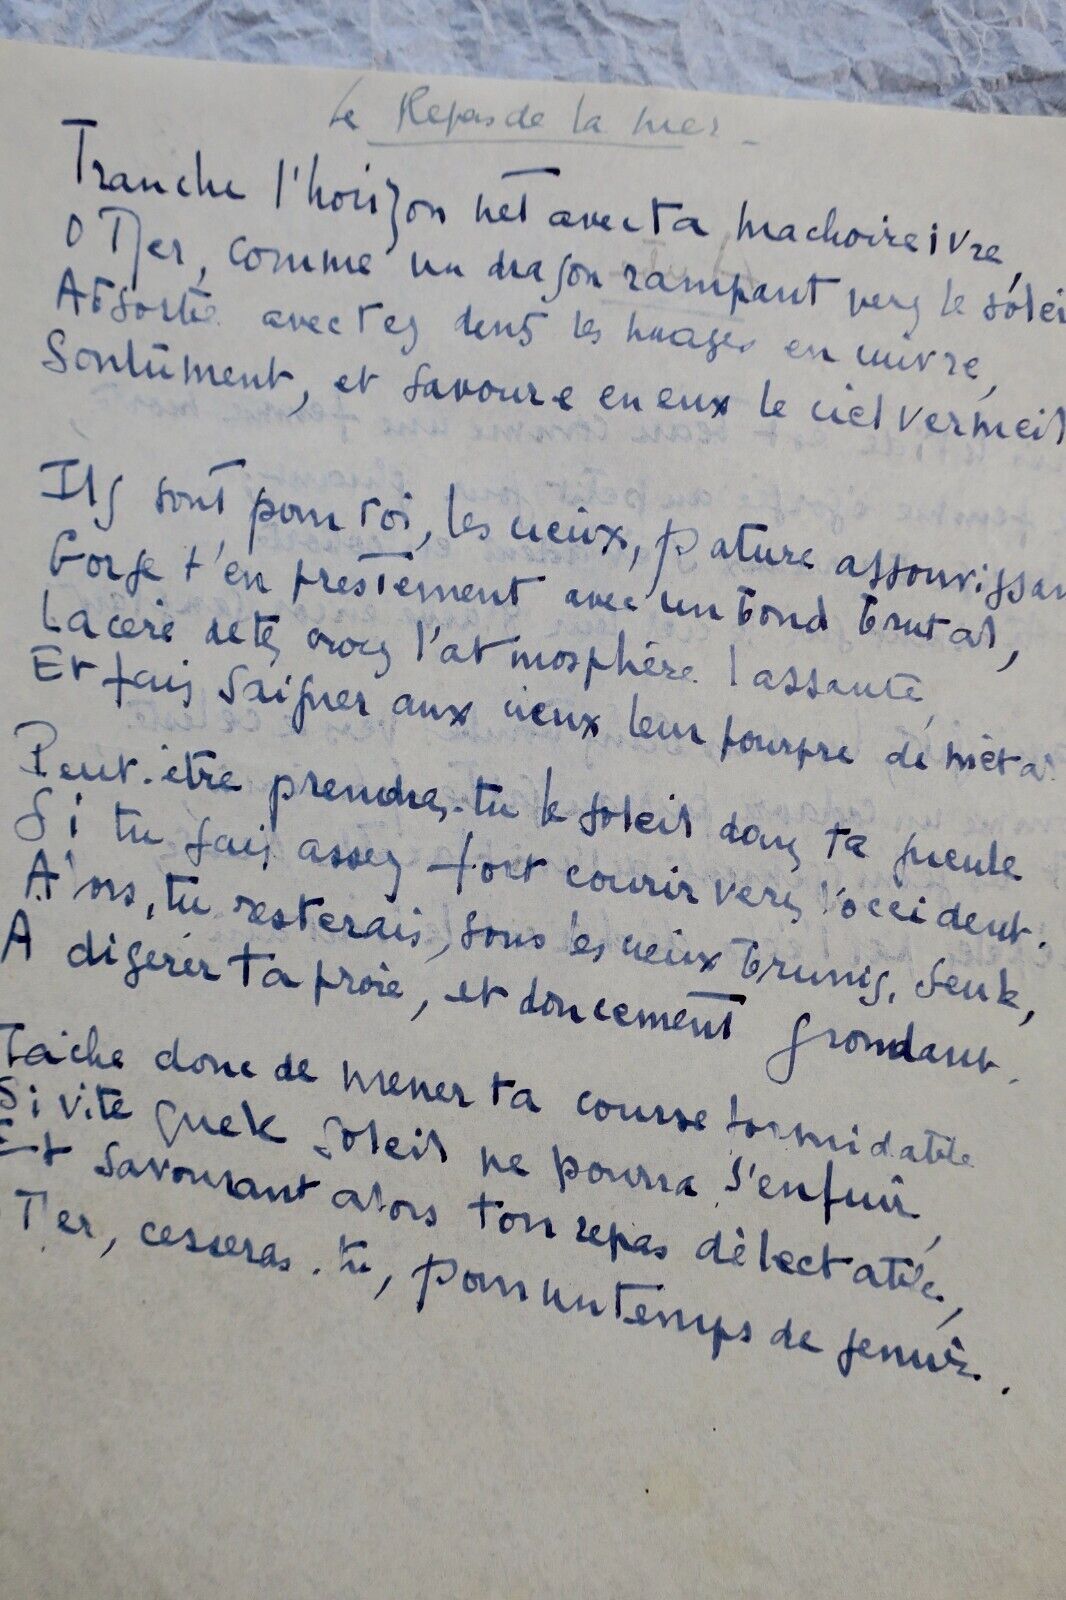 Le Repas de la mer
Tranche l'horizon net avec ta machoire ivre,
O Mer, comme un dragon rampant vers le solei
Absorbe avec tes dents les nuages en cuivre,
Goulûment, et savoure en eux le ciel vermeil
Ils sont pour toi, les cieux, pature assouvissan
Gorge t'en prestement avec un bond brutal,
Lacère de tes crocs l'atmosphère lassante,
Et fais saigner aux cieux leur pourpre de méta
Peut-être prendras-tu le soleil dans ta gueule
Si tu sais assez fort courir vers l'occident.
Alors, tu resterais, sous les cieux brunis, seule,
A digérer ta proie, et doucement grondant.
Tache donc de mener ta course formidable
Si vite que le soleil ne pourra s'enfuir,
Et savourant alors ton repas délectable,
Mer, cesseras-tu, pour un temps de gémir.